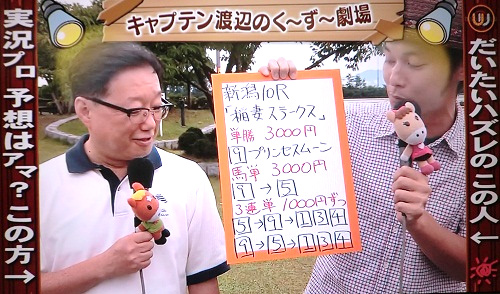 キャプテン渡辺のく〜ず〜劇場
実況プロ 予想はアマ?この方→
だいたいハズレのこの人←
新潟10R
「稲妻ステークス」
単勝 3000円
9 プリンセスムーン
馬単 3000円
9→5
3連単 1000円ずつ
5→9→1 3 4
9→5→1 3 4